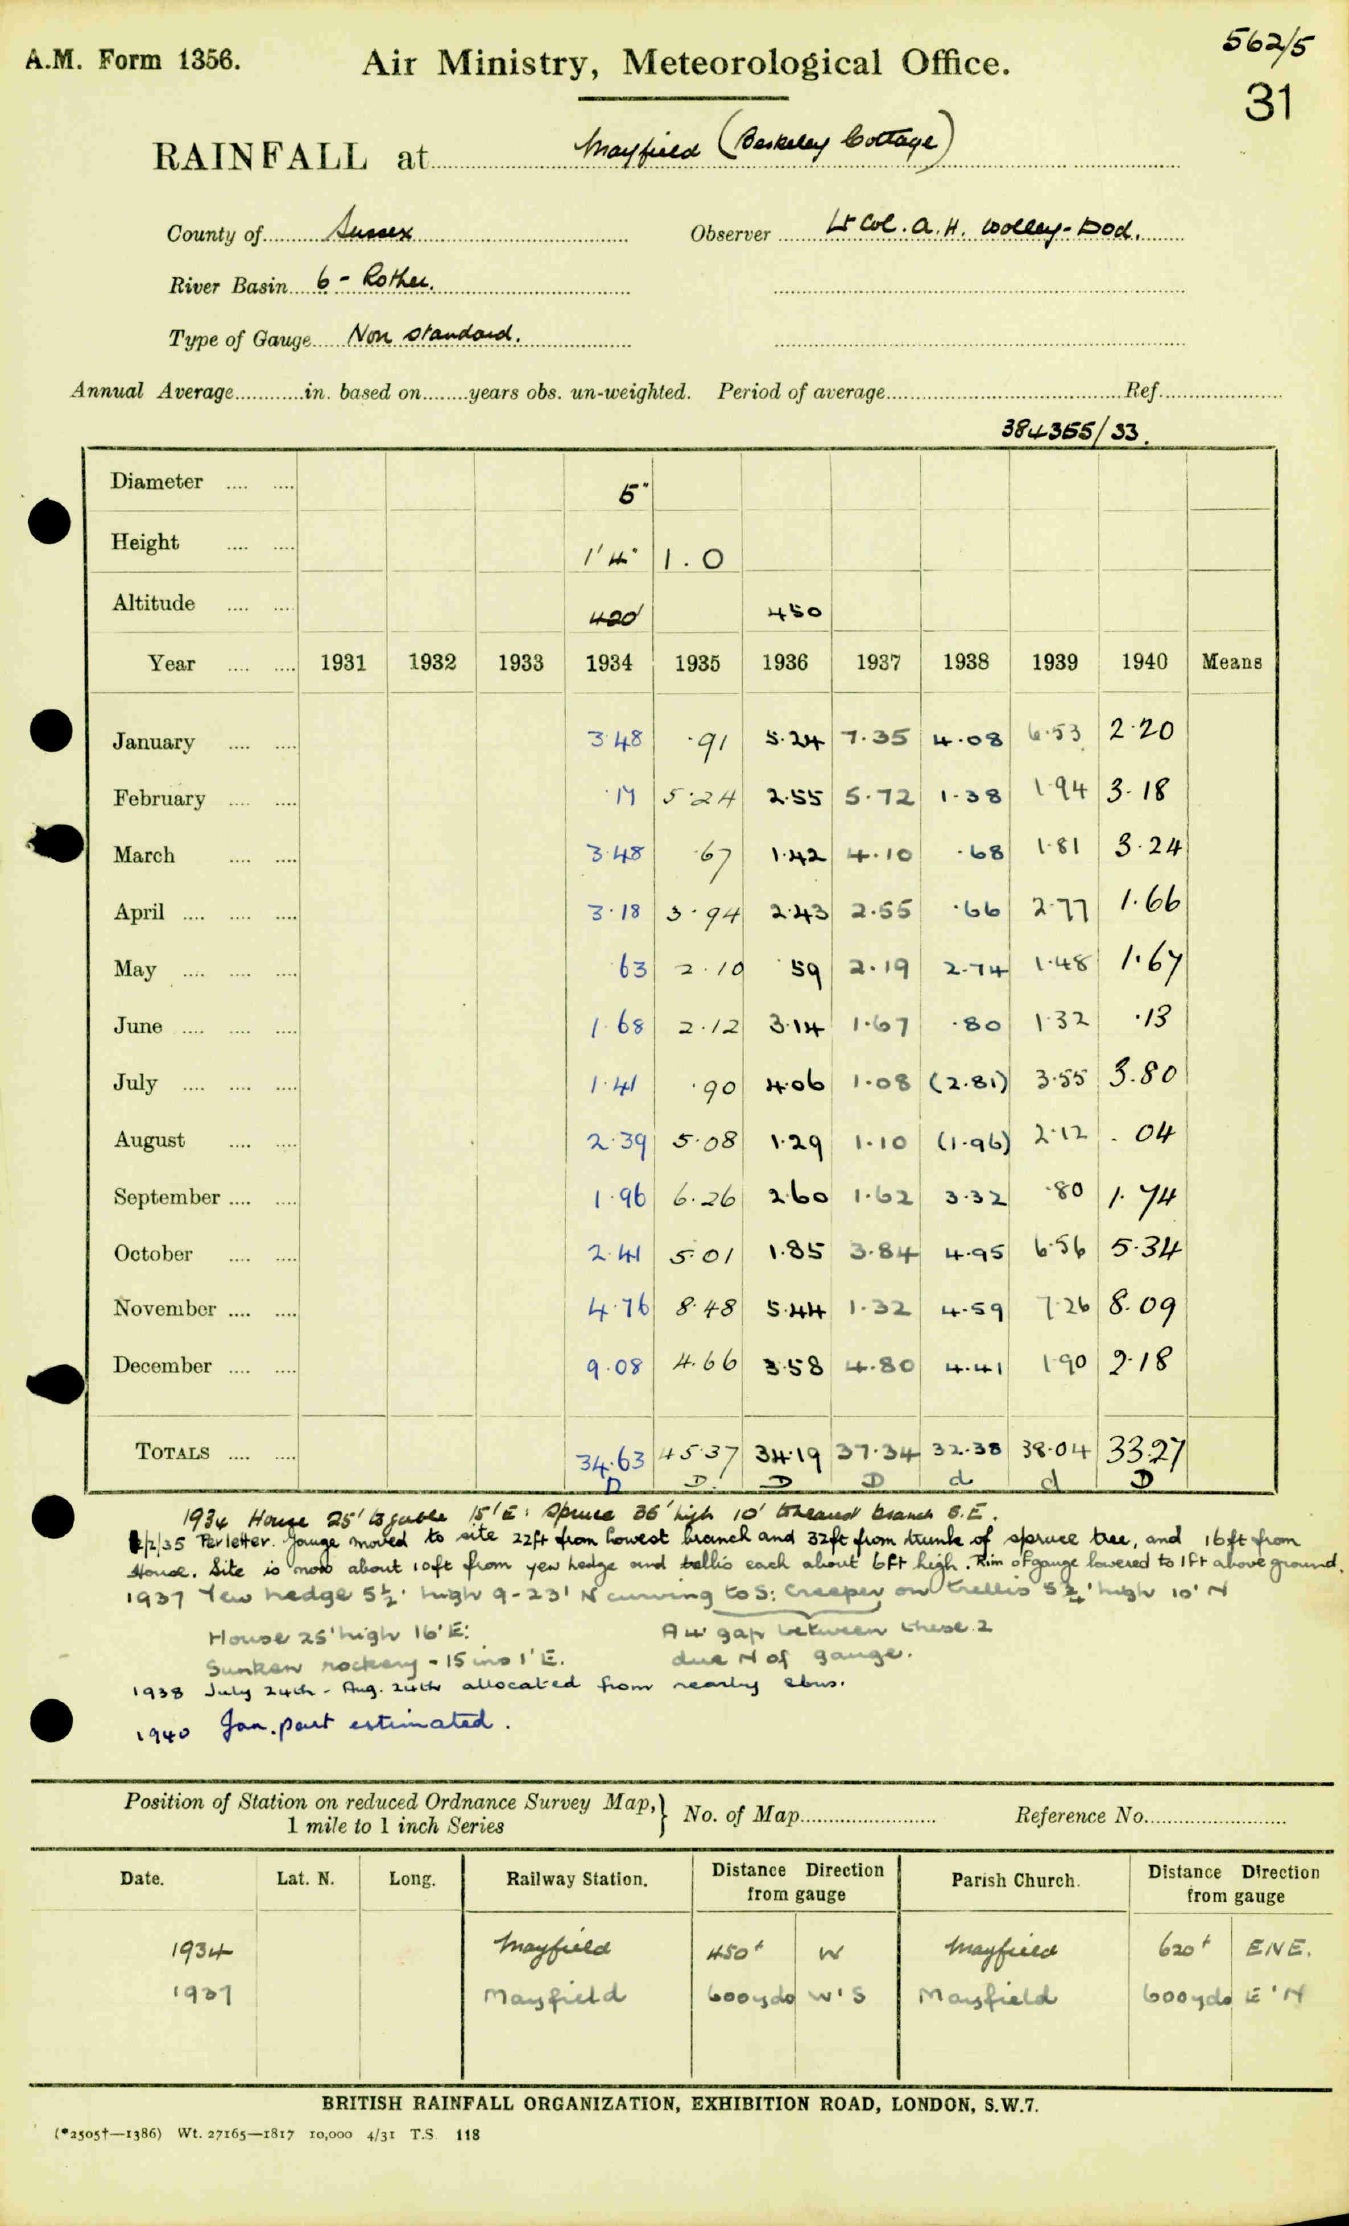 562/5
A.M. Form 1356.
Air Ministry, Meteorological Office.
31
RAINFALL at Mayfield (Berkeley Cottage)
County of Sussex Observer Lt Col. A. H. Wolley-Dod.
River Basin 6 - Rother.
Type of Gauge Non standard.
Annual Average............in. based on........years obs. un-weighted. Period of average............Ref............
384355/33.
Diameter .... .... 5"
Height .... .... 1'4" 1.0
Altitude .... .... 420' 450
Year .... .... 1931 1932 1933 1934 1935 1936 1937 1938 1939 1940 Means
January .... .... 3.48 .91 5.24 7.35 4.08 6.53 2.20
February .... .... .17 5.24 2.55 5.72 1.38 1.94 3.18
March .... .... 3.48 .67 1.42 4.10 .68 1.81 3.24
April .... .... .... 3.18 3.94 2.43 2.55 .66 2.77 1.66
May .... .... .... .63 2.10 .59 2.19 2.74 1.48 1.67
June .... .... .... 1.68 2.12 3.14 1.67 .80 1.32 .13
July .... .... .... 1.41 .90 4.06 1.08 (2.81) 3.55 3.80
August .... .... 2.39 5.08 1.29 1.10 (1.96) 2.12 .04
September .... .... 1.96 6.26 2.60 1.62 3.32 .80 1.74
October .... .... 2.41 5.01 1.85 3.84 4.95 6.56 5.34
November .... .... 4.76 8.48 5.44 1.32 4.59 7.26 8.09
December .... .... 9.08 4.66 3.58 4.80 4.41 1.90 2.18
TOTALS .... .... 34.63 45.37 34.19 37.34 32.38 38.04 33.27
D D D D d d D
1934 House 25' to gable 15' E: Spruce 36' high 10' to nearest branch S.E.
2/2/35 Per letter. Gauge moved to site 22ft from lowest branch and 32ft from trunk of spruce tree, and 16ft from
House. Site is now about 10ft from yew hedge and trellis each about 6ft high. Rim of gauge lowered to 1ft above ground.
1937 Yew hedge 5½' high 9-23' N curving to S: Creeper on trellis 5¾' high 10' N
House 25' high 16' E: A 4' gap between these 2
Sunken rockery - 15 ins 1' E. due N of gauge.
1938 July 24th - Aug. 24th allocated from nearby obns.
1940 Jan. part estimated.
Position of Station on reduced Ordnance Survey Map, } No. of Map............ Reference No............
1 mile to 1 inch Series
Date. Lat. N. Long. Railway Station. Distance Direction from gauge Parish Church. Distance Direction from gauge
1934 Mayfield 450+ W Mayfield 620+ ENE.
1937 Mayfield 600yds W'S Mayfield 600yds E'N
BRITISH RAINFALL ORGANIZATION, EXHIBITION ROAD, LONDON, S.W.7.
(*2505†—1386) Wt. 27165—1817 10,000 4/31 T.S. 118